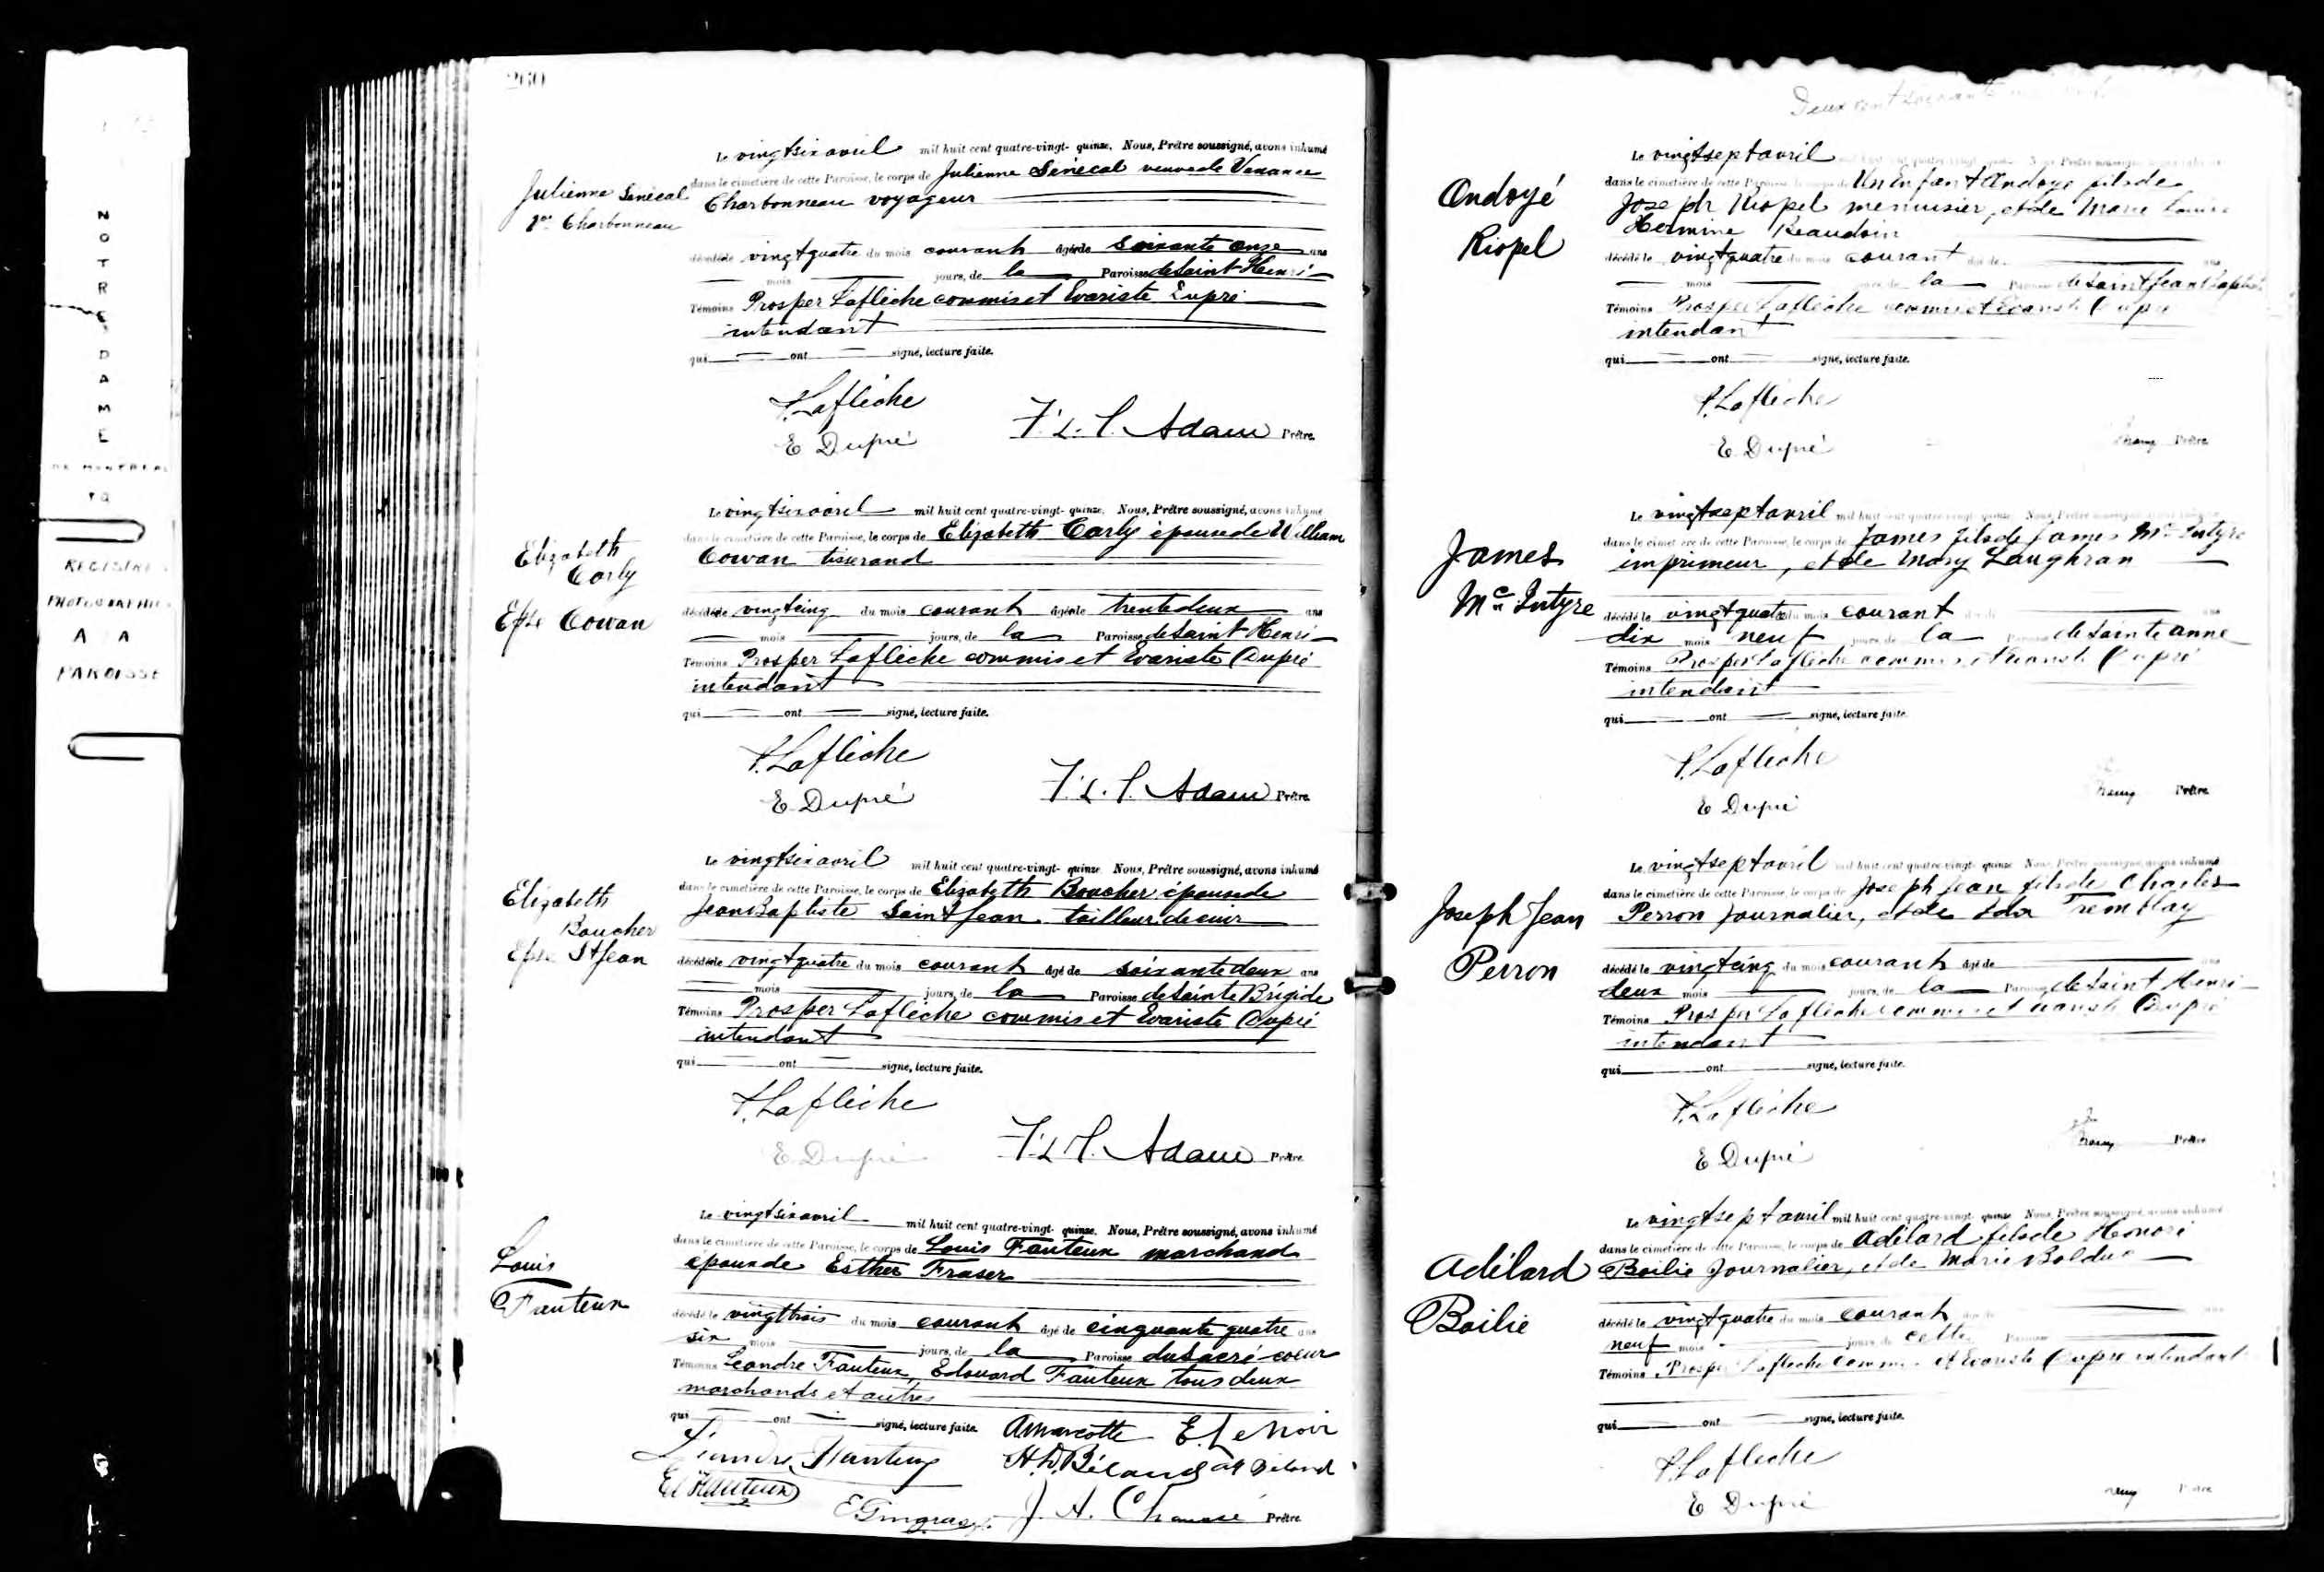 NOTRE DAME
REGISTRE
PHOTOGRAPHIE
A A
PAROISSE
260
Julienne Senécal
Charbonneau
Le vingt six avril mil huit cent quatre-vingt- quinze. Nous, Prêtre soussigné, avons inhumé
dans le cimetière de cette Paroisse, le corps de Julienne Senécal veuve de Venance
Charbonneau voyageur
décédée vingt quatre du mois courant âgée de soixante onze ans
mois jours, de la Paroisse de Saint Henri
Témoins Prosper Laflèche commis et Evariste Dupré
intendant
qui ont signé, lecture faite.
P. Laflèche
E Dupré
F. L. T. Adam Prêtre.
Elizabeth
Carly
Epse Cowan
Le vingt six avril mil huit cent quatre-vingt- quinze. Nous, Prêtre soussigné, avons inhumé
dans le cimetière de cette Paroisse, le corps de Elizabeth Carly épouse de William
Cowan tisserand
décédée vingt cinq du mois courant âgée de trente deux ans
mois jours, de la Paroisse de Saint Henri
Témoins Prosper Laflèche commis et Evariste Dupré
intendant
qui ont signé, lecture faite.
P. Laflèche
E. Dupré
F. L. T. Adam Prêtre.
Elizabeth
Boucher
Epse St Jean
Le vingt six avril mil huit cent quatre-vingt- quinze Nous, Prêtre soussigné, avons inhumé
dans le cimetière de cette Paroisse, le corps de Elizabeth Boucher épouse de
Jean Baptiste Saint Jean tailleur de cuir
décédée vingt quatre du mois courant âgé de soixante deux ans
mois jours, de la Paroisse de Sainte Brigide
Témoins Prosper Laflèche commis et Evariste Dupré
intendant
qui ont signé, lecture faite.
P. Laflèche
E. Dupré
F. L. T. Adam Prêtre.
Louis
Fauteux
Le vingt six avril mil huit cent quatre-vingt- quinze. Nous, Prêtre soussigné, avons inhumé
dans le cimetière de cette Paroisse, le corps de Louis Fauteux marchand
époux de Esther Fraser
décédé le vingt trois du mois courant âgé de cinquante quatre ans
six mois jours, de la Paroisse du Sacré-coeur
Témoins Léandre Fauteux, Edouard Fauteux tous deux
marchands et autres
qui ont signé, lecture faite. A Marcotte E. Le Noir
Léandre Fauteux H. D. Béland
Ed Fauteux
E Gingras J. A. Prêtre
Deux cent soixante
Ondoyé
Riopel
Le vingt sept avril mil huit cent quatre-vingt- quinze Nous, Prêtre soussigné
dans le cimetière de cette Paroisse, le corps de Un Enfant Ondoyé fils de
Joseph Riopel menuisier, et de Marie Louise
Hermine Beaudoin
décédé le vingt quatre du mois courant
mois la Paroisse de Saint Jean Baptiste
Témoins Prosper Laflèche commis et Evariste Dupré
intendant
qui ont signé, lecture faite.
P. Laflèche
E. Dupré
Prêtre.
James
Mc Intyre
Le vingt sept avril mil huit cent quatre-vingt- quinze
dans le cimetière de cette Paroisse, le corps de James fils de James Mc Intyre
imprimeur, et de Mary Laughran
décédé le vingt quatre du mois courant
dix mois neuf jours, de la Paroisse de Sainte Anne
Témoins Prosper Laflèche commis et Evariste Dupré
intendant
qui ont signé, lecture faite.
P. Laflèche
E Dupré
Prêtre
Joseph Jean
Perron
Le vingt sept avril mil huit cent quatre-vingt- quinze Nous, Prêtre soussigné, avons inhumé
dans le cimetière de cette Paroisse, le corps de Joseph Jean fils de Charles
Perron journalier, et de Ida Tremblay
décédé le vingt cinq du mois courant âgé de
deux mois jours, de la Paroisse de Saint Henri
Témoins Prosper Laflèche commis et Evariste Dupré
intendant
qui ont signé, lecture faite.
P. Laflèche
E Dupré
Prêtre
Adélard
Bailie
Le vingt sept avril mil huit cent quatre-vingt- quinze Nous, Prêtre soussigné, avons inhumé
dans le cimetière de cette Paroisse, le corps de Adélard fils de Honoré
Bailie Journalier, et de Marie Bolduc
décédé le vingt quatre du mois courant
neuf mois jours, de cette Paroisse
Témoins Prosper Laflèche commis et Evariste Dupré intendant
qui ont signé, lecture faite.
P. Laflèche
E Dupré
Prêtre